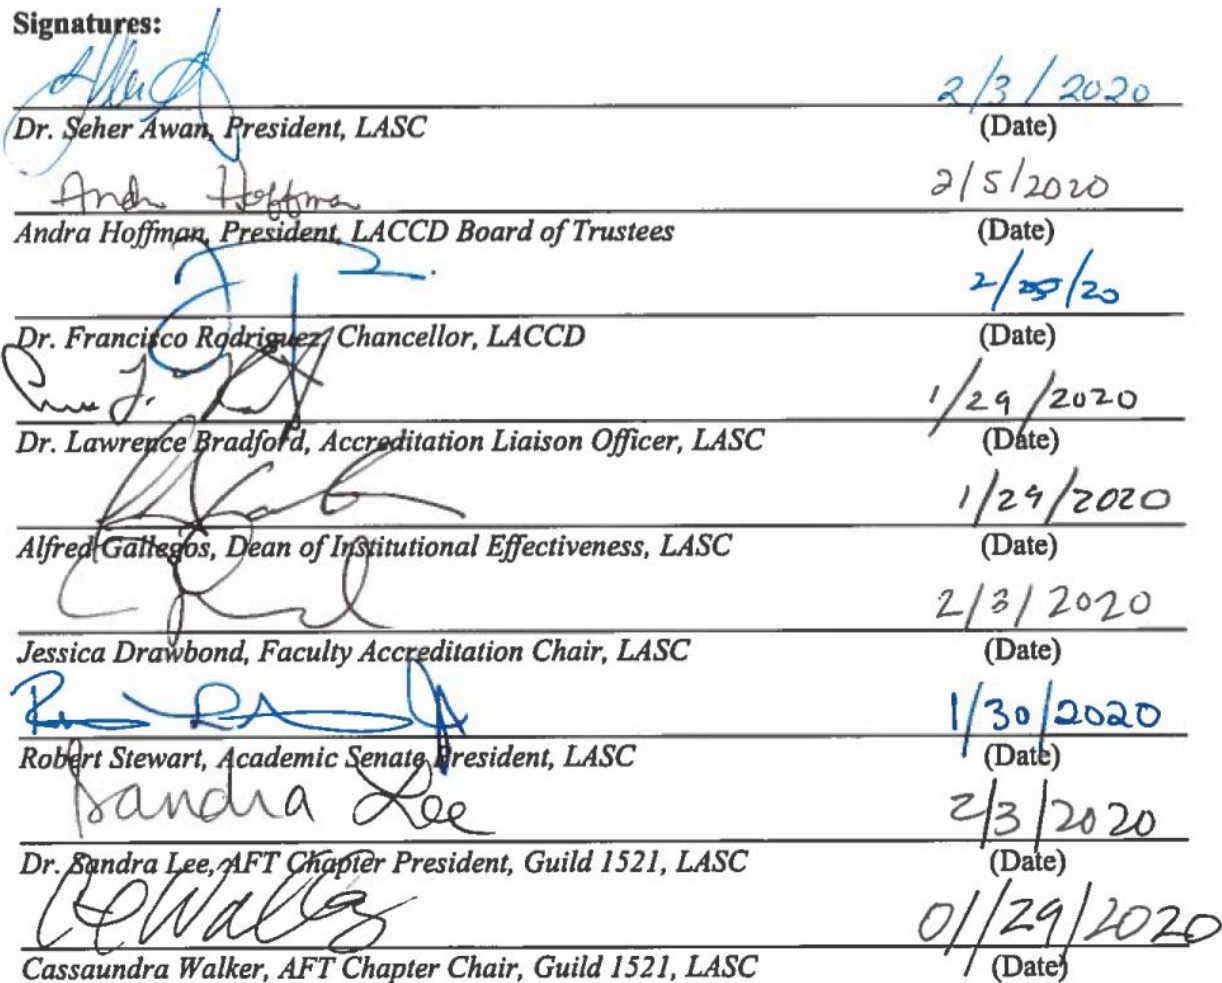 Signatures:
2/3/2020
Dr. Seher Awan, President, LASC (Date)
Andra Hoffman 2/5/2020
Andra Hoffman, President, LACCD Board of Trustees (Date)
Dr. Francisco Rodriguez, Chancellor, LACCD (Date)
1/29/2020
Dr. Lawrence Bradford, Accreditation Liaison Officer, LASC (Date)
1/29/2020
Alfred Gallegos, Dean of Institutional Effectiveness, LASC (Date)
2/3/2020
Jessica Drawbond, Faculty Accreditation Chair, LASC (Date)
1/30/2020
Robert Stewart, Academic Senate President, LASC (Date)
Sandra Lee 2/3/2020
Dr. Sandra Lee, AFT Chapter President, Guild 1521, LASC (Date)
01/29/2020
Cassaundra Walker, AFT Chapter Chair, Guild 1521, LASC (Date)